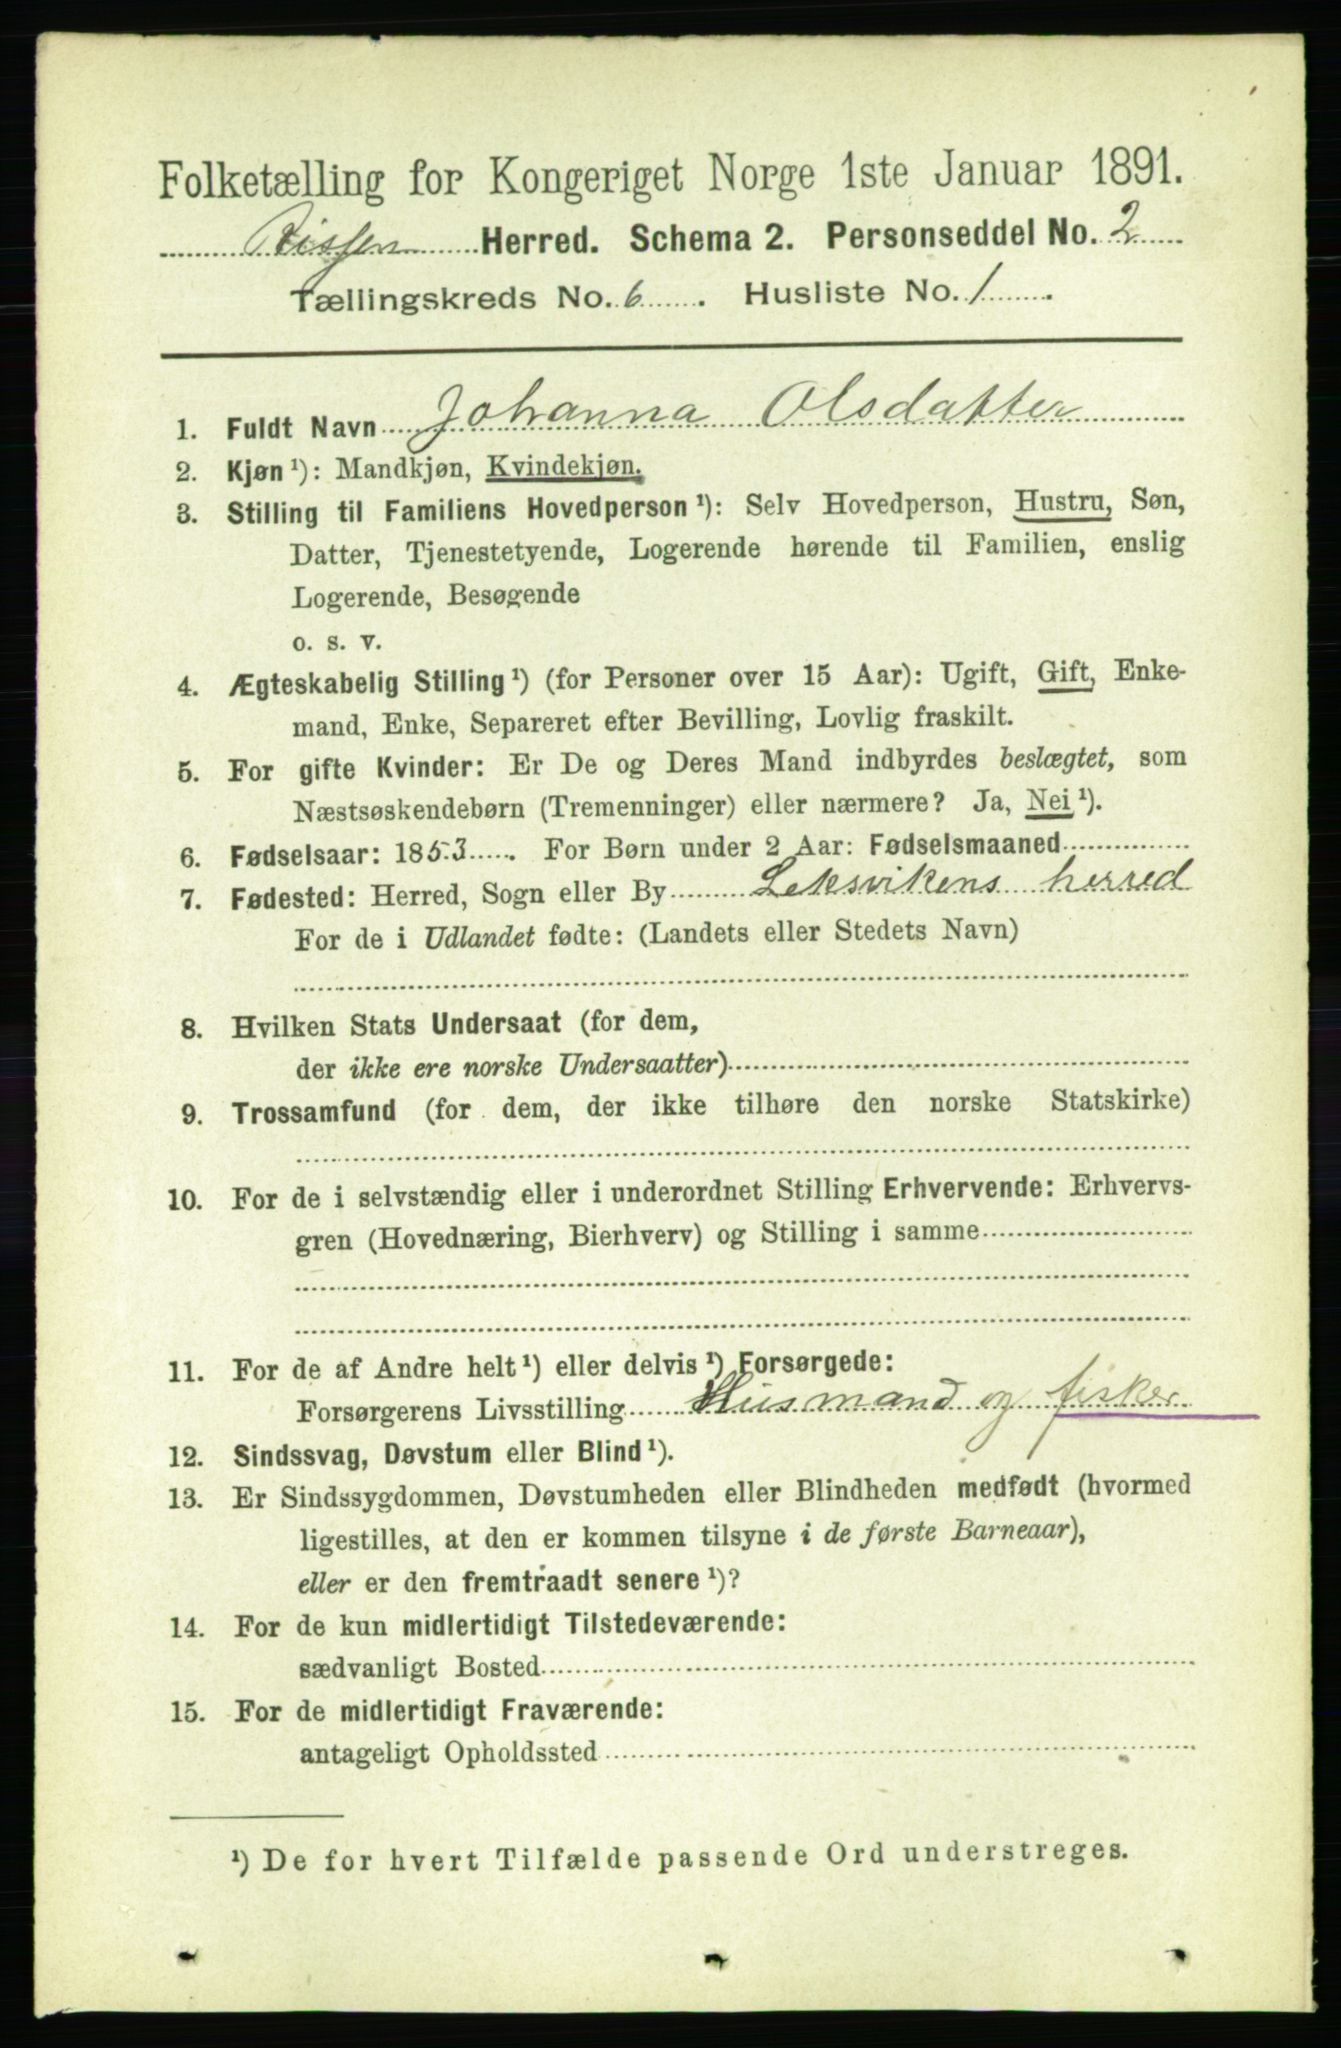 Folketælling for Kongeriget Norge 1ste Januar 1891.
Rissen Herred. Schema 2. Personseddel No. 2
Tællingskreds No. 6. Husliste No. 1.
1. Fuldt Navn Johanna Olsdatter
2. Kjøn ¹): Mandkjøn, Kvindekjøn.
3. Stilling til Familiens Hovedperson ¹): Selv Hovedperson, Hustru, Søn,
Datter, Tjenestetyende, Logerende hørende til Familien, enslig
Logerende, Besøgende
o. s. v.
4. Ægteskabelig Stilling ¹) (for Personer over 15 Aar): Ugift, Gift, Enke-
mand, Enke, Separeret efter Bevilling, Lovlig fraskilt.
5. For gifte Kvinder: Er De og Deres Mand indbyrdes beslægtet, som
Næstsøskendebørn (Tremenninger) eller nærmere? Ja, Nei ¹).
6. Fødselsaar: 1853. For Børn under 2 Aar: Fødselsmaaned
7. Fødested: Herred, Sogn eller By Leksvikens herred
For de i Udlandet fødte: (Landets eller Stedets Navn)
8. Hvilken Stats Undersaat (for dem,
der ikke ere norske Undersaatter)
9. Trossamfund (for dem, der ikke tilhøre den norske Statskirke)
10. For de i selvstændig eller i underordnet Stilling Erhvervende: Erhvervs-
gren (Hovednæring, Bierhverv) og Stilling i samme
11. For de af Andre helt ¹) eller delvis ¹) Forsørgede:
Forsørgerens Livsstilling Husmand og fisker
12. Sindssvag, Døvstum eller Blind ¹).
13. Er Sindssygdommen, Døvstumheden eller Blindheden medfødt (hvormed
ligestilles, at den er kommen tilsyne i de første Barneaar),
eller er den fremtraadt senere ¹)?
14. For de kun midlertidigt Tilstedeværende:
sædvanligt Bosted
15. For de midlertidigt Fraværende:
antageligt Opholdssted
¹) De for hvert Tilfælde passende Ord understreges.